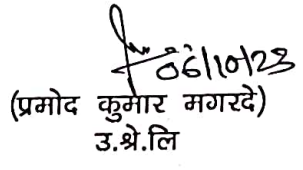 06/10/23
(प्रमोद कुमार मगरदे)
उ.श्रे.लि